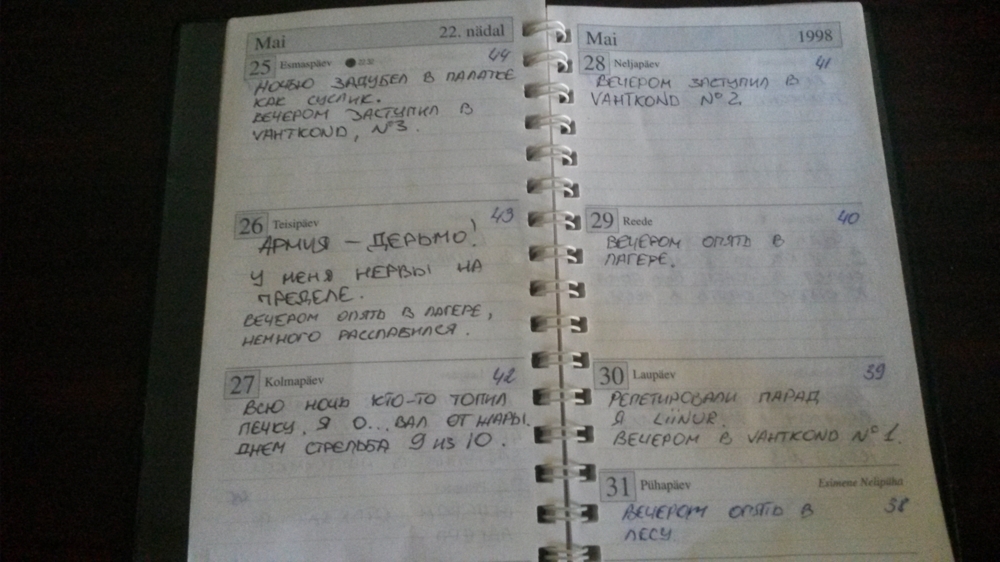 Mai 22. nädal
25 Esmaspäev 44
НОЧЬЮ ЗАДУБЕЛ В ПАЛАТКЕ
КАК СУСЛИК.
ВЕЧЕРОМ ЗАСТУПИЛ В
VAHTKOND, №3.
26 Teisipäev 43
АРМИЯ – ДЕРЬМО!
У МЕНЯ НЕРВЫ НА
ПРЕДЕЛЕ.
ВЕЧЕРОМ ОПЯТЬ В ЛАГЕРЕ,
НЕМНОГО РАССЛАБИЛСЯ.
27 Kolmapäev 42
ВСЮ НОЧЬ КТО-ТО ТОПИЛ
ПЕЧКУ. Я О...ВАЛ ОТ ЖАРЫ.
ДНЕМ СТРЕЛЬБА 9 ИЗ 10.
Mai 1998
28 Neljapäev 41
ВЕЧЕРОМ ЗАСТУПИЛ В
VAHTKOND №2.
29 Reede 40
ВЕЧЕРОМ ОПЯТЬ В
ЛАГЕРЕ.
30 Laupäev 39
РЕПЕТИРОВАЛИ ПАРАД
Я LIINUR.
ВЕЧЕРОМ В VAHTKOND №1.
31 Pühapäev Esimene Nelipüha 38
ВЕЧЕРОМ ОПЯТЬ В
ЛЕСУ.